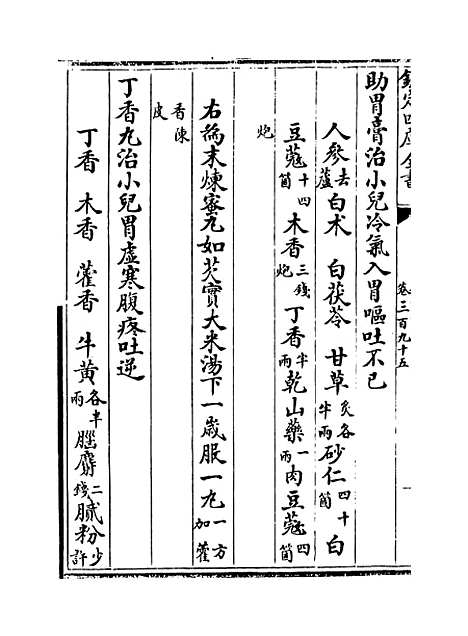 欽定四庫全書
卷三百九十五
助胃膏治小兒冷氣入胃嘔吐不已
人參去蘆白术 白茯苓 甘草炙各半兩砂仁四十箇白
豆蔻十四箇 木香三錢炮 丁香半兩乾山藥一兩肉豆蔻四箇
炮
右為末煉蜜丸如芡實大米湯下一歲服一丸一方加藿
香陳皮
丁香丸治小兒胃虛寒腹疼吐逆
丁香 木香 藿香 牛黃各半兩 腦麝二錢膩粉少許